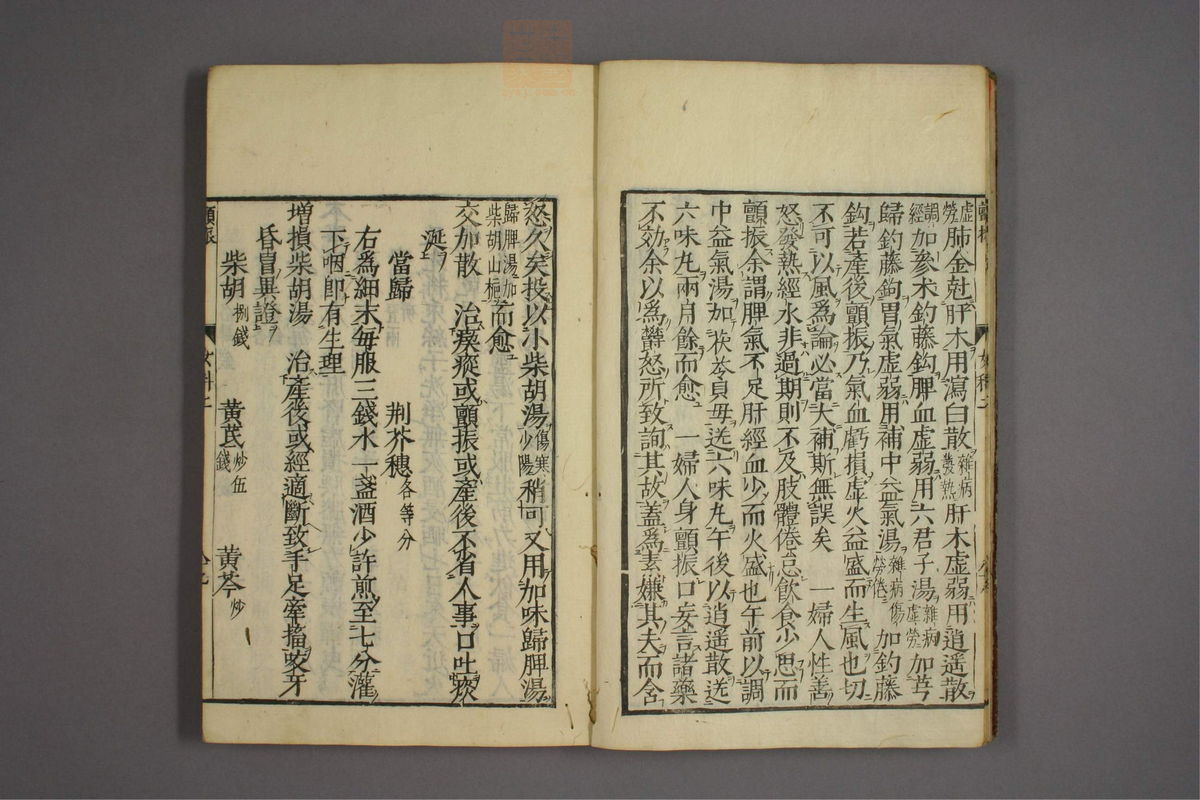 虛勞肺金尅肝木用瀉白散雜病發熱肝木虛弱用逍遥散
調經加參朮鈞藤鈎脾血虛弱用六君子湯雜病虛勞加芎
歸鈞藤鈎胃氣虛弱用補中益氣湯雜病傷勞倦加鈞藤
鈎若產後顫振乃氣血虧損虛火益盛而生風也切
不可以風爲論必當大補斯無誤矣　一婦人性善
怒發熱經水非過期則不及肢體倦怠飲食少思而
顫振余謂脾氣不足肝經血少而火盛也午前以調
中益氣湯加茯苓貝母送六味丸午後以逍遥散送
六味丸兩月餘而愈　一婦人身顫振口妄言諸藥
不効余以爲欝怒所致詢其故蓋爲素嫌其夫而含
怒久矣投以小柴胡湯傷寒少陽稍可又用加味歸脾湯
歸脾湯加柴胡山梔而愈
交加散　治瘈瘲或顫振或產後不省人事口吐痰
涎
當歸　荆芥穗各等分
右爲細末每服三錢水一盞酒少許煎至七分灌
下咽卽有生理
增損柴胡湯　治產後或經適斷致手足牽搐咬牙
昏冒異證
柴胡捌錢　黃芪炒伍錢　黃芩炒